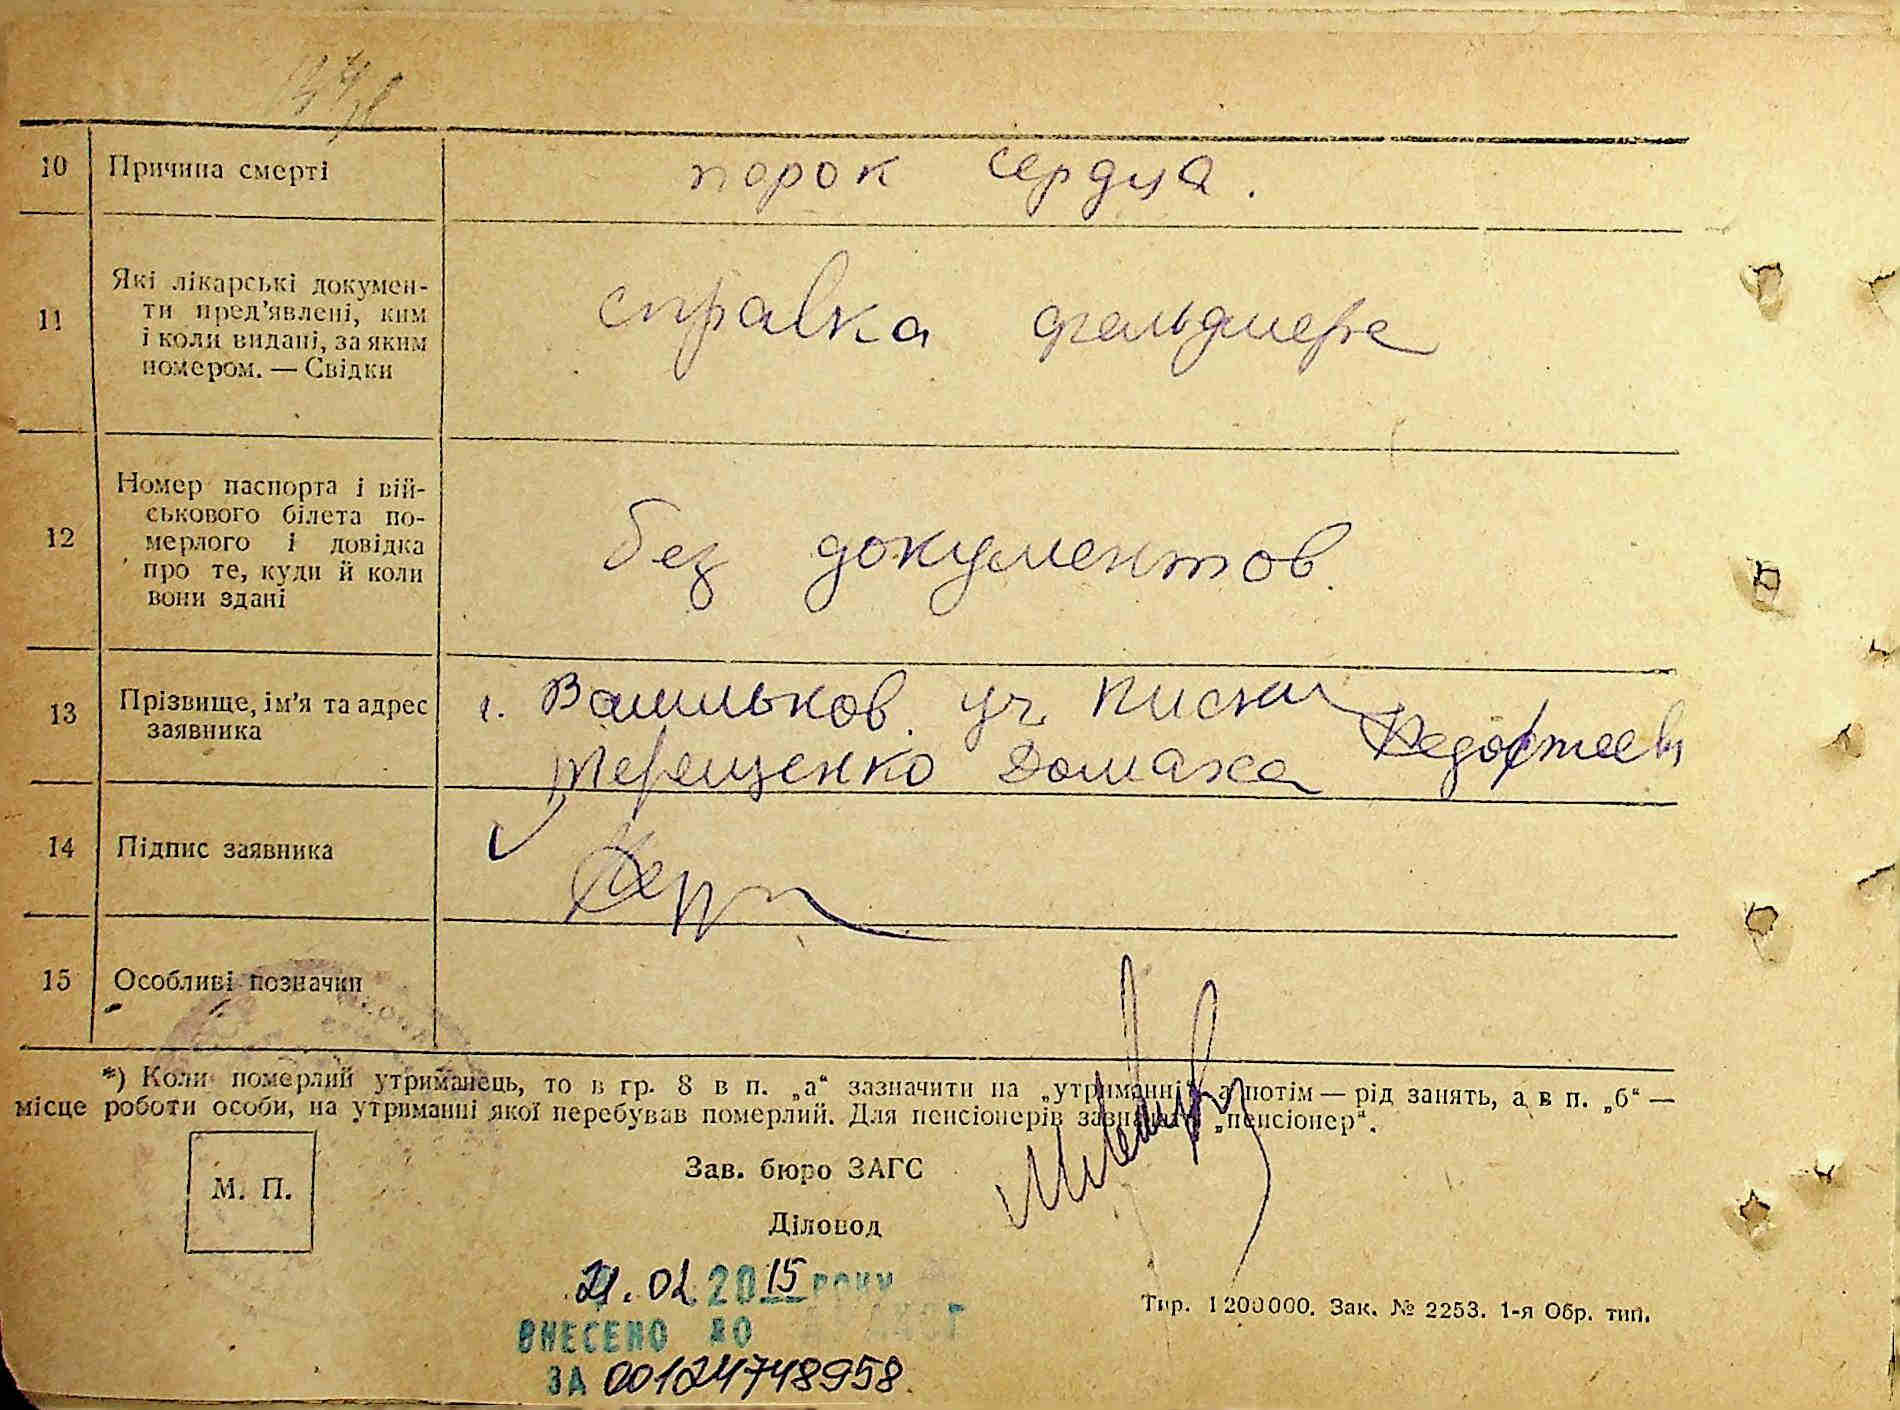 10 Причина смерті порок сердца.
11 Які лікарські докумен-
ти пред'явлені, ким
і коли видані, за яким
номером. — Свідки
справка фельдшера
12 Номер паспорта і вій-
ськового білета по-
мерлого і довідка
про те, куди й коли
вони здані
без документов.
13 Прізвище, ім'я та адрес
заявника
г. Васильков уч.
Терещенко Домаха
14 Підпис заявника
15 Особливі позначки
*) Коли померлий утриманець, то в гр. 8 в п. „а“ зазначити на „утриманні“, а потім — рід занять, а в п. „б“ —
місце роботи особи, на утриманні якої перебував померлий. Для пенсіонерів зазначати „пенсіонер“.
М. П.
Зав. бюро ЗАГС
Діловод
21.02 2015 РОКУ
ВНЕСЕНО ДО
ЗА 00124748958
Тир. 1200000. Зак. № 2253. 1-я Обр. тип.